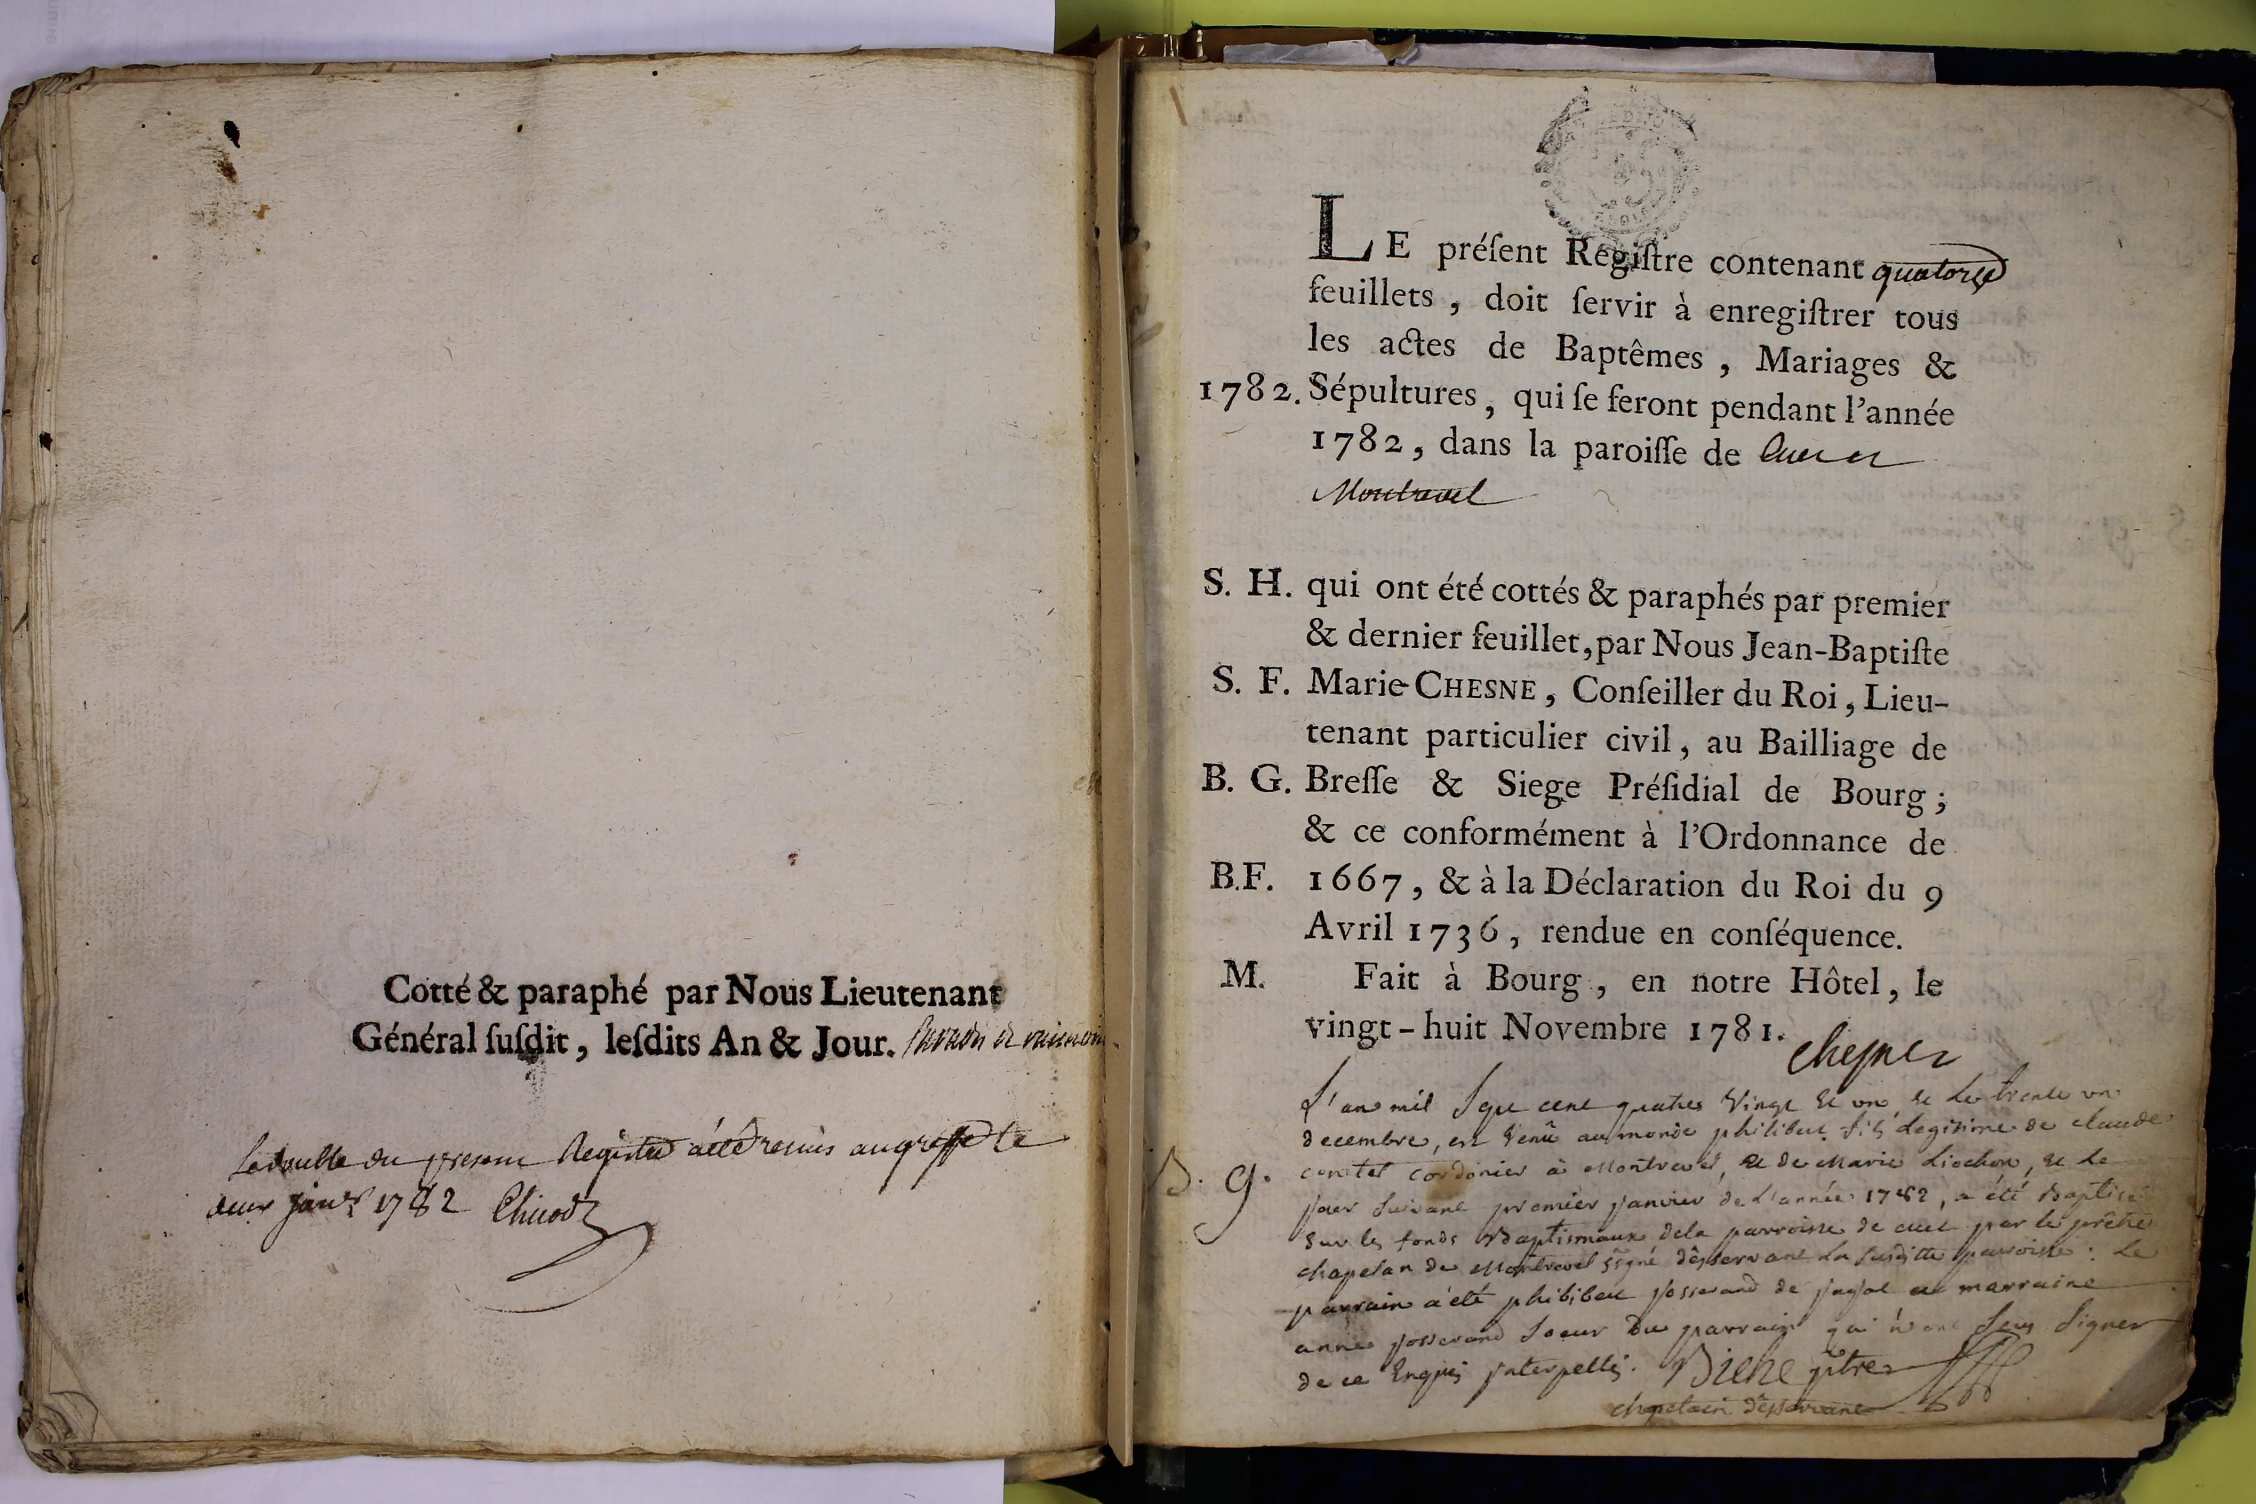 Cotté & paraphé par Nous Lieutenant
Général ſuſdit, leſdits An & Jour.
Le double du present Registre a été remis au greffe le
deux janv.r 1782
LE préſent Regiſtre contenant quatorze
feuillets, doit ſervir à enregiſtrer tous
les actes de Baptêmes, Mariages &
1782. Sépultures, qui ſe feront pendant l'année
1782, dans la paroiſſe de Cuet et
Montrevel
S. H. qui ont été cottés & paraphés par premier
& dernier feuillet, par Nous Jean-Baptiſte
S. F. Marie CHESNE, Conſeiller du Roi, Lieu-
tenant particulier civil, au Bailliage de
B. G. Breſſe & Siege Préſidial de Bourg;
& ce conformément à l'Ordonnance de
B.F. 1667, & à la Déclaration du Roi du 9
Avril 1736, rendue en conſéquence.
M. Fait à Bourg, en notre Hôtel, le
vingt-huit Novembre 1781.
Chesne
L'an mil Sept cent quatres Vingt et un et Le trente un
decembre, est Venû au monde philibert fils Legitime de claude
B. G. cordonier à Montrevel, et de Marie Liochon, et Le
jour Suivant premier janvier de L'année 1782, a été Baptisé
Sur les fonds Baptismaux dela parroisse de cuet par le prêtre
chapelan de Montrevel ssigné dêsservant La susditte parroisse. Le
parrain a été philibert josserand de jayat et marraine
anne josserand Soeur Du parrain qui n'ont Seu Signer
de ce Enquis jnterpellés. ptre
chapelain dêsservant